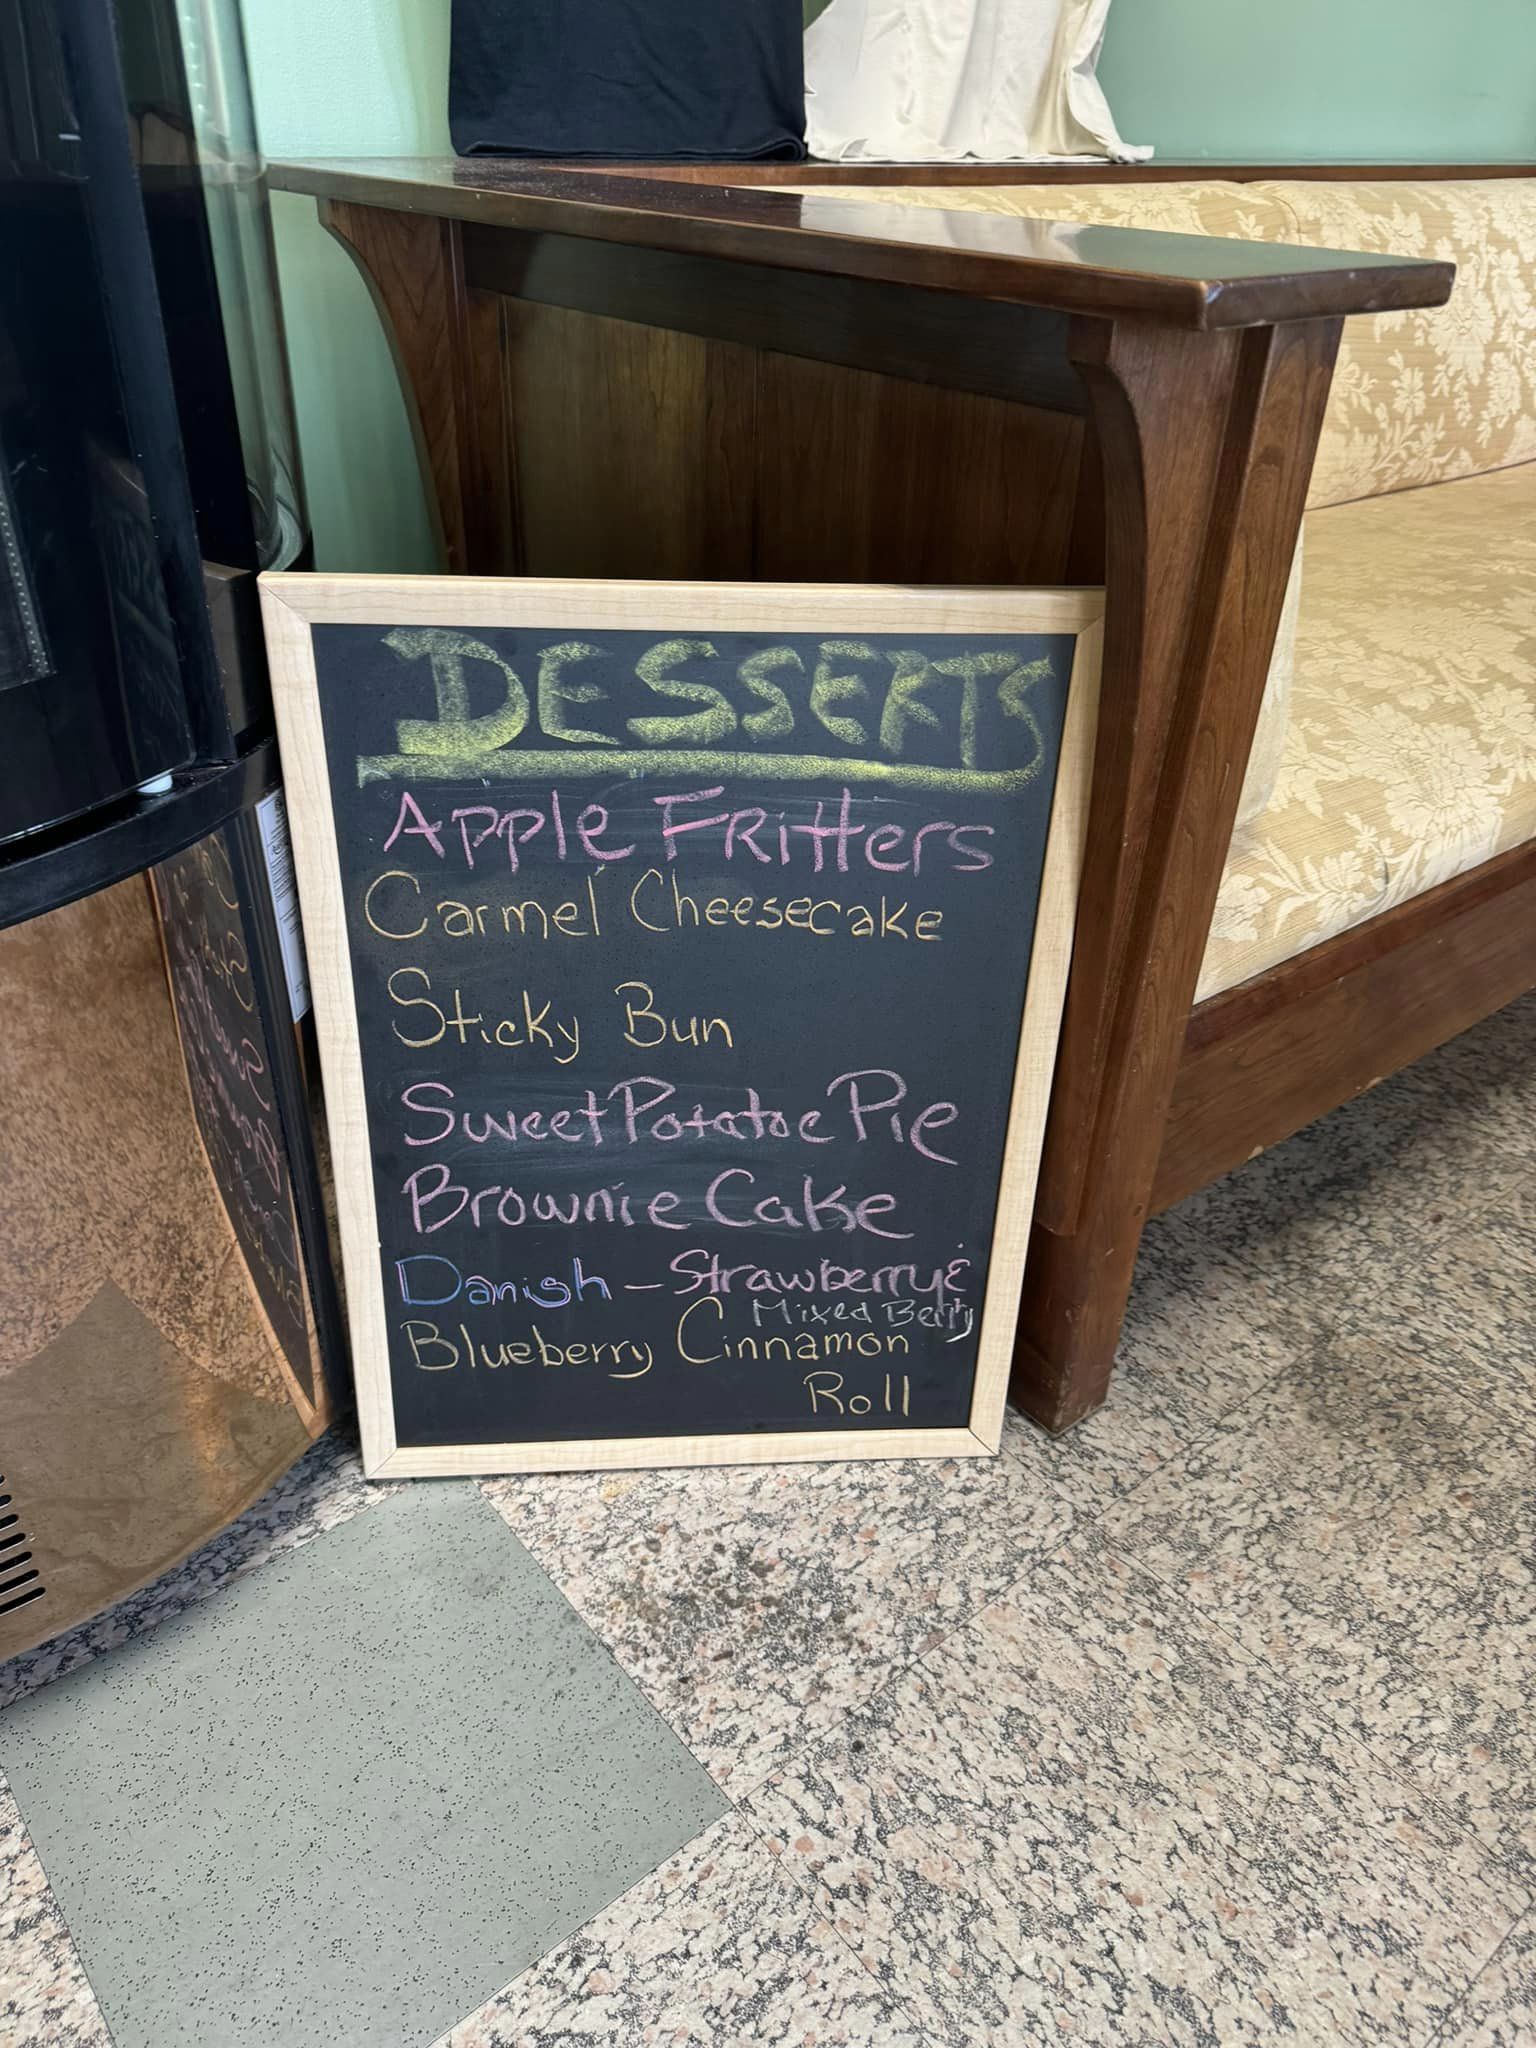 DESSERTS
Apple Fritters
Carmel Cheesecake
Sticky Bun
Sweet Potatoe Pie
Brownie Cake
Danish - Strawberry &
Mixed Berry
Blueberry Cinnamon
Roll